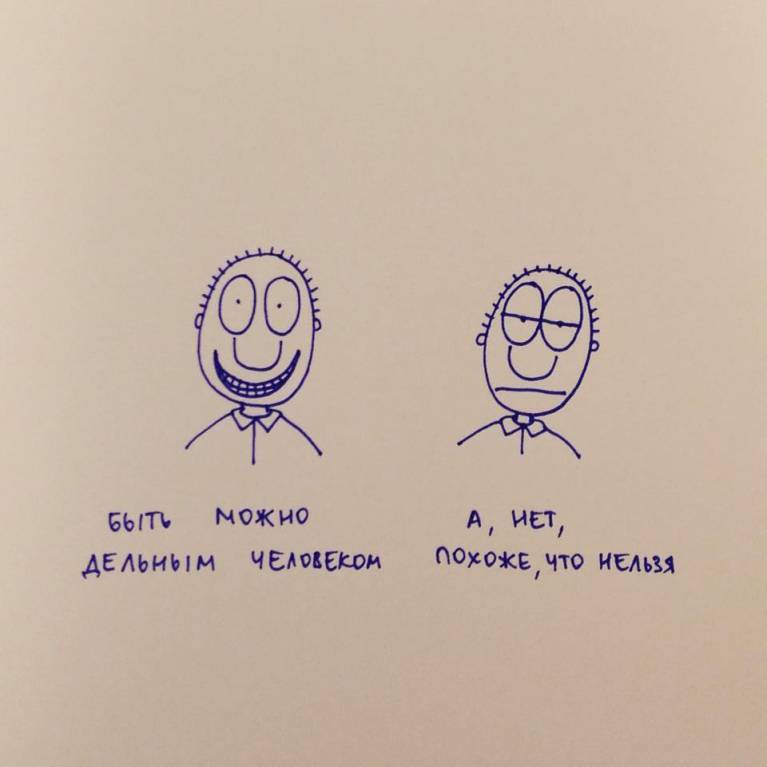 БЫТЬ МОЖНО
ДЕЛЬНЫМ ЧЕЛОВЕКОМ
А, НЕТ,
ПОХОЖЕ, ЧТО НЕЛЬЗЯ